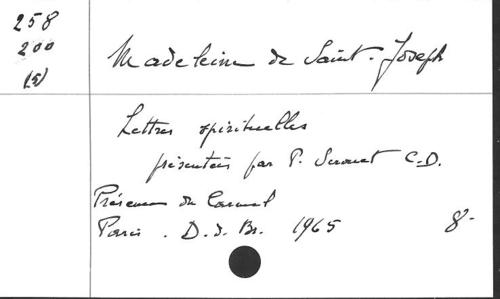 258
200
(5)
Madeleine de Saint-Joseph
Lettres spirituelles
présentées par P. Serouet C-D.
Présence du Carmel
Paris. D.d.Br. 1965 8-